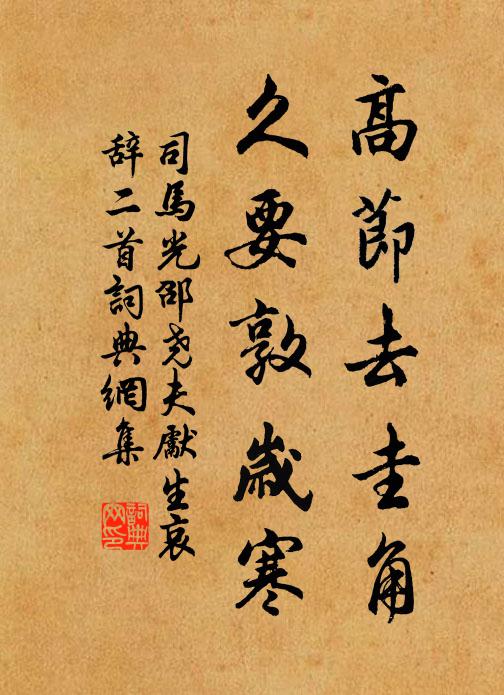 高節去圭角
久要敦歲寒
司馬光邵尧夫獻生哀
辞二首詞典網集
詞典网印